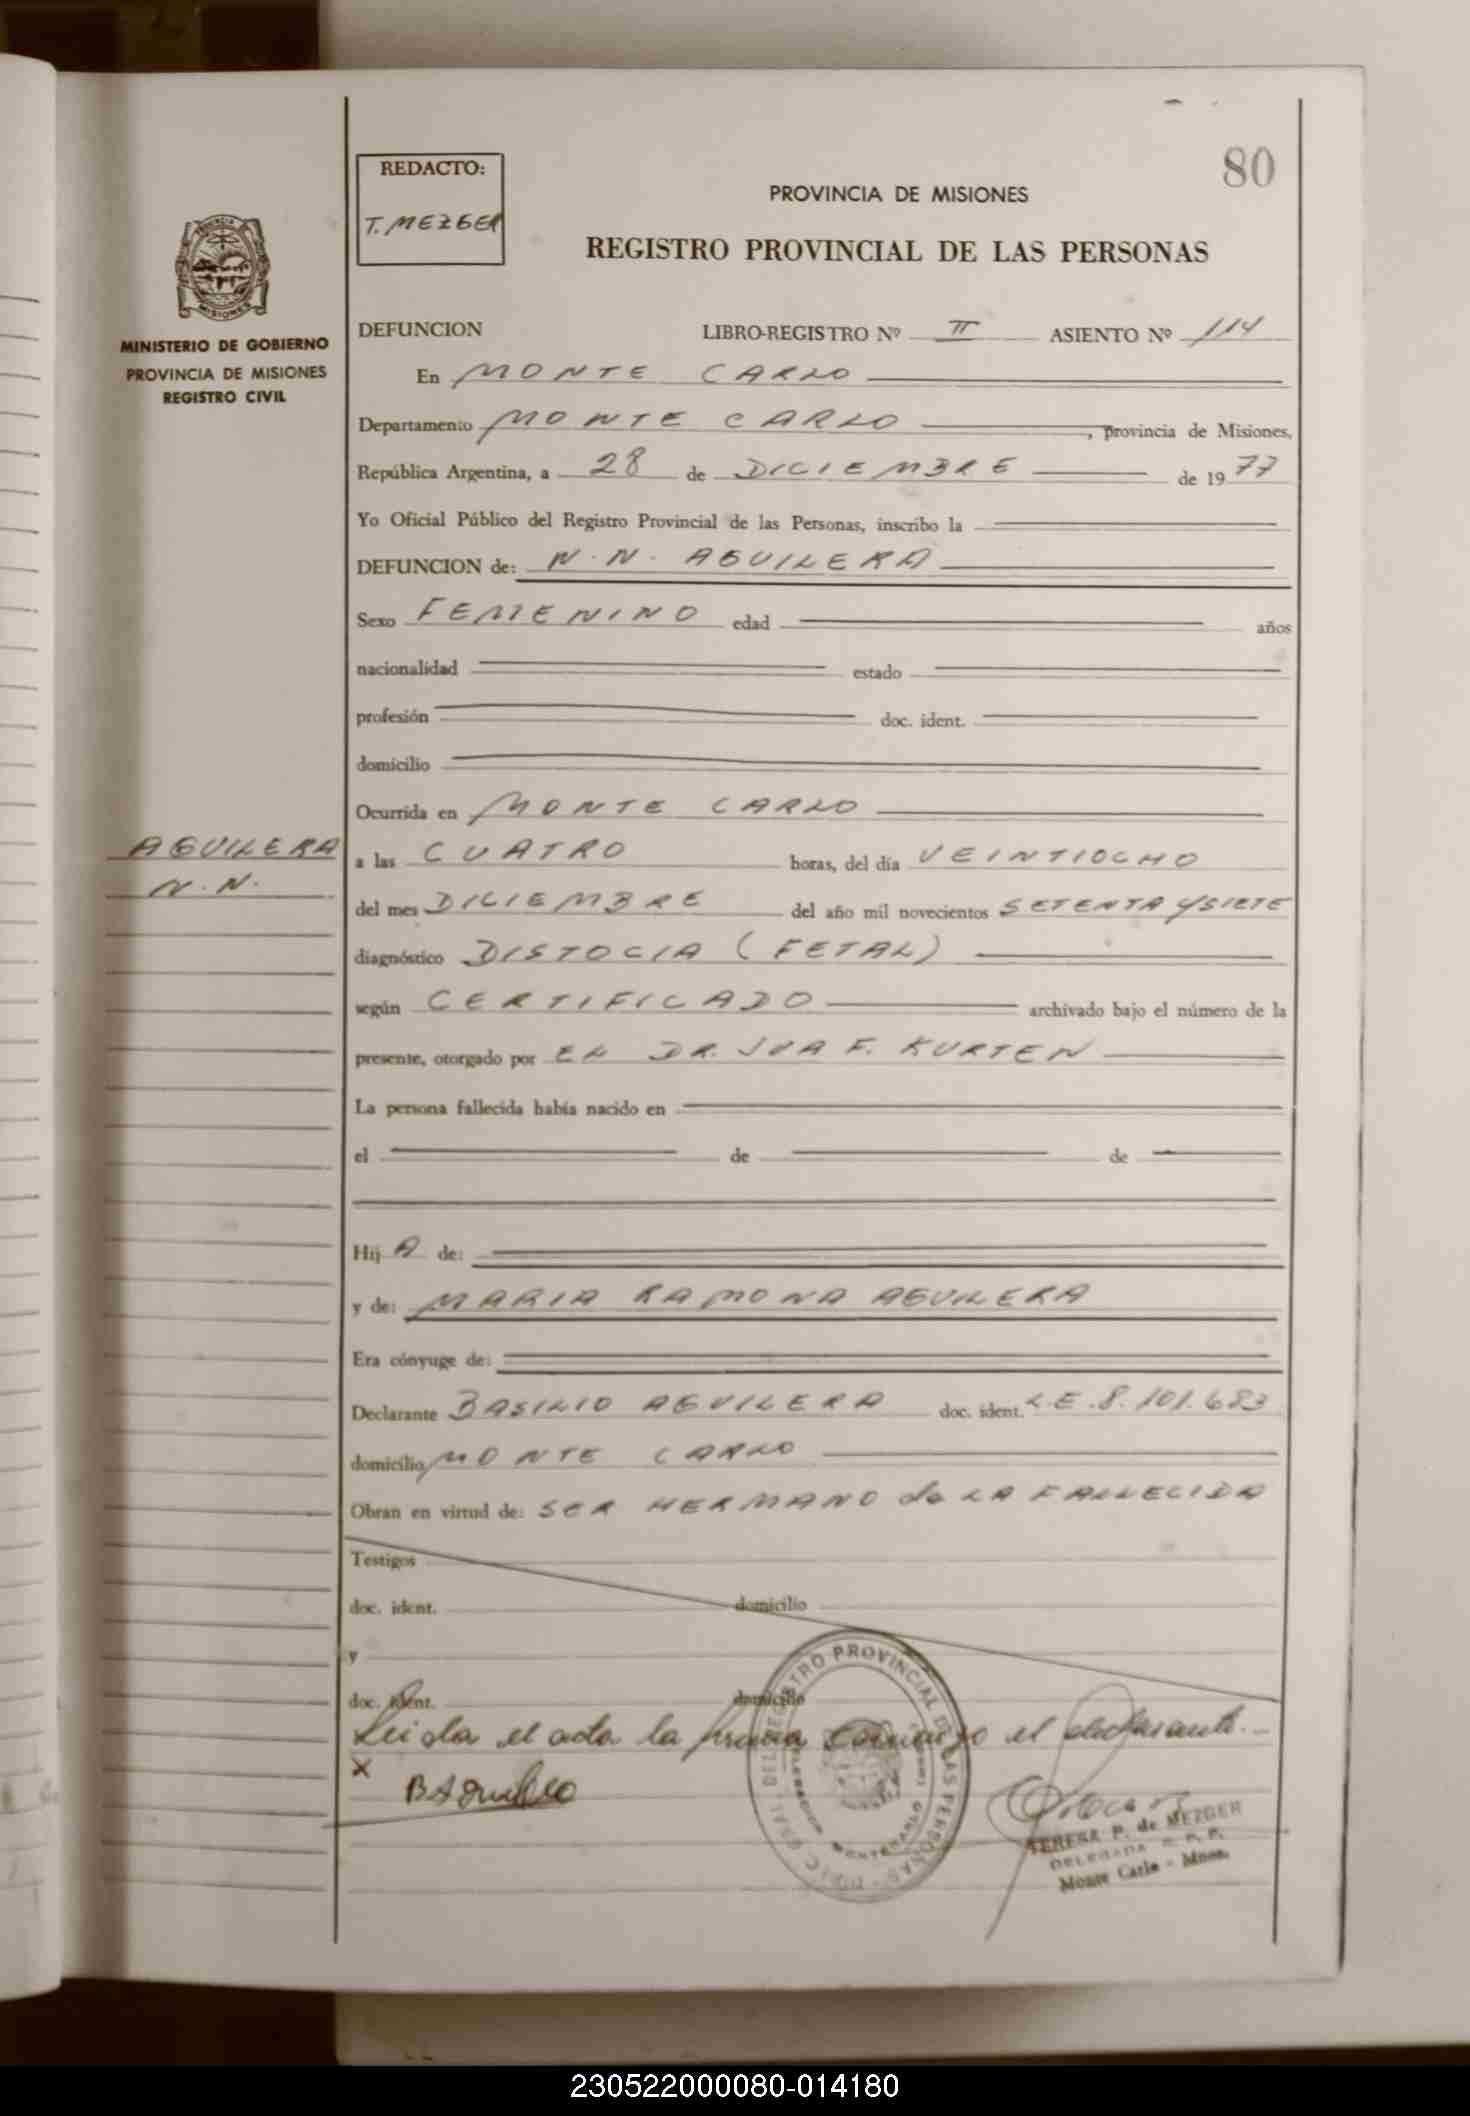 80
REDACTO:
T. MEZGER
PROVINCIA DE MISIONES
REGISTRO PROVINCIAL DE LAS PERSONAS
MISIONES
MINISTERIO DE GOBIERNO
PROVINCIA DE MISIONES
REGISTRO CIVIL
DEFUNCION LIBRO-REGISTRO Nº II ASIENTO Nº 114
En MONTE CARLO
Departamento MONTE CARLO, provincia de Misiones,
República Argentina, a 28 de DICIEMBRE de 1977
Yo Oficial Público del Registro Provincial de las Personas, inscribo la
DEFUNCION de: N. N. AGUILERA
Sexo FEMENINO edad años
nacionalidad estado
profesión doc. ident.
domicilio
Ocurrida en MONTE CARLO
AGUILERA
N. N.
a las CUATRO horas, del día VEINTIOCHO
del mes DICIEMBRE del año mil novecientos SETENTA Y SIETE
diagnóstico DISTOCIA (FETAL)
según CERTIFICADO archivado bajo el número de la
presente, otorgado por EL DR. JUA F. KURTEN
La persona fallecida había nacido en
el de de
Hij A de:
y de: MARIA RAMONA AGUILERA
Era cónyuge de:
Declarante BASILIO AGUILERA doc. ident. L.E. 8.101.683
domicilio MONTE CARLO
Obran en virtud de: SER HERMANO de LA FALLECIDA
Testigos
doc. ident. domicilio
y
doc. ident. domicilio
Leida el acta la firma conmigo el declarante.
X
DEL REGISTRO PROVINCIAL DE LAS PERSONAS
MONTECARLO
TERESA P. de MEZGER
DELEGADA R. P. P.
Monte Carlo - Mnes.
230522000080-014180